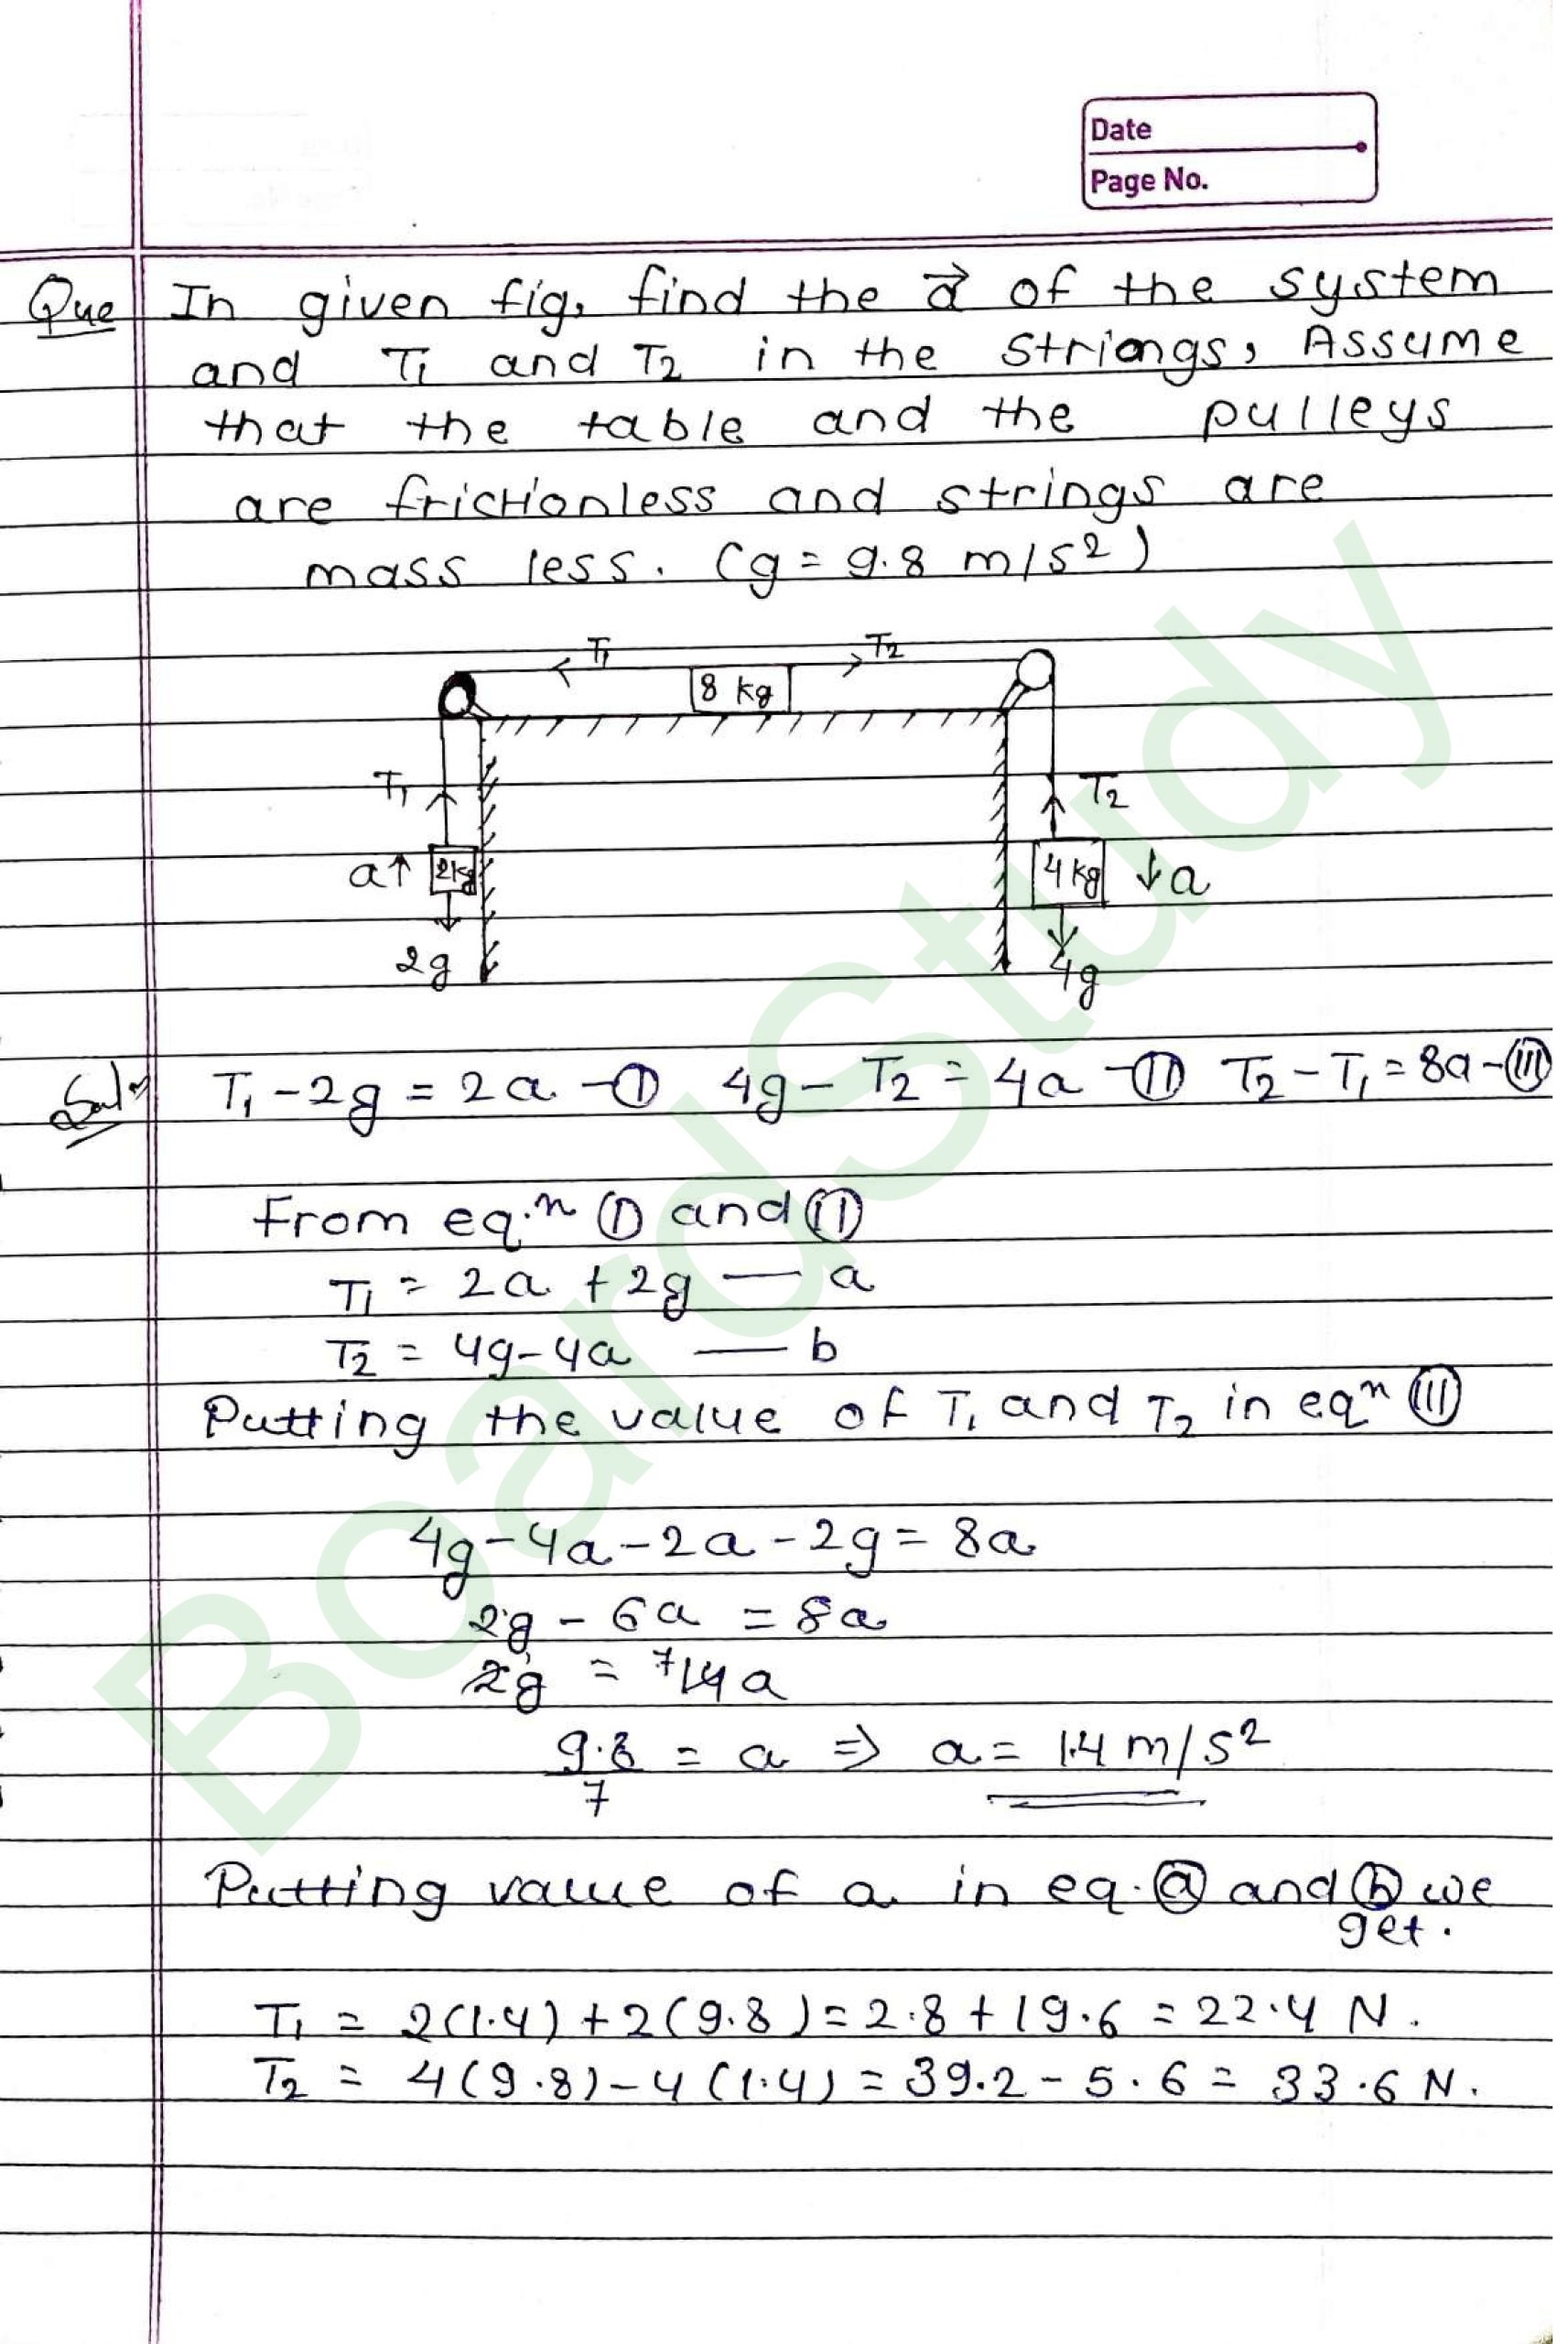 Date
Page No.
Que In given fig, find the a⃗ of the system
and T₁ and T₂ in the striongs, Assume
that the table and the pulleys
are frictionless and strings are
mass less. (g = 9.8 m/s²)
T₁ T₂
8 kg
T₁ T₂
a↑ 2kg 4 kg ↓a
2g 4g
Sol^n T₁ - 2g = 2a -① 4g - T₂ = 4a -⑪ T₂ - T₁ = 8a -Ⓘⓘⓘ
From eq.ⁿ ① and ⑪
T₁ = 2a + 2g — a
T₂ = 4g - 4a — b
Putting the value of T₁ and T₂ in eqⁿ (III)
4g - 4a - 2a - 2g = 8a
2g - 6a = 8a
2g = ⁷14a
9.8/7 = a ⇒ a = 1.4 m/s²
Putting value of a in eq. ⓐ and ⓑ we
get.
T₁ = 2(1.4) + 2(9.8) = 2.8 + 19.6 = 22.4 N.
T₂ = 4(9.8) - 4(1.4) = 39.2 - 5.6 = 33.6 N.
BoardStudy